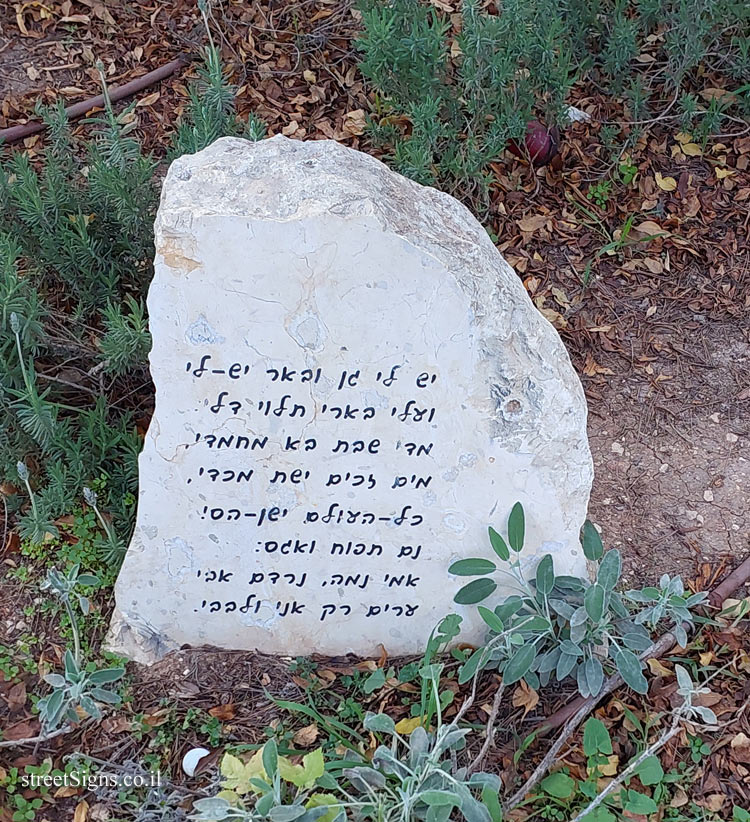 יש לי גן ובאר יש-לי
ועלי בארי תלוי דלי
מדי שבת בא מחמדי,
מים זכים ישת מכדי.
כל-העולם ישן-הס!
נם תפוח ואגס:
אמי נמה, נרדם אבי
ערים רק אני ולבבי.
streetSigns.co.il